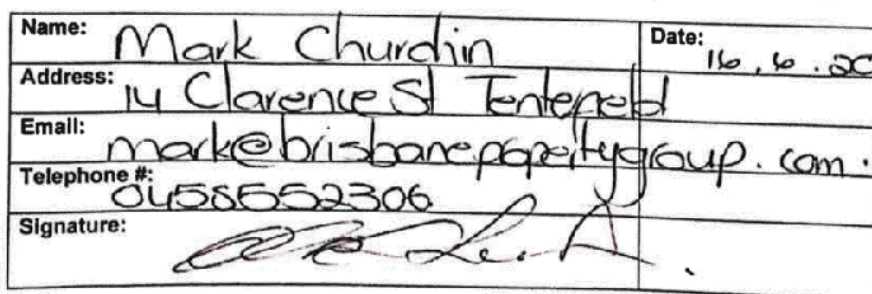 Name: Mark Churchin Date: 16.6.20
Address: 14 Clarence St Tenterfield
Email: mark@brisbanepropertygroup.com.
Telephone #: 0458552306
Signature: